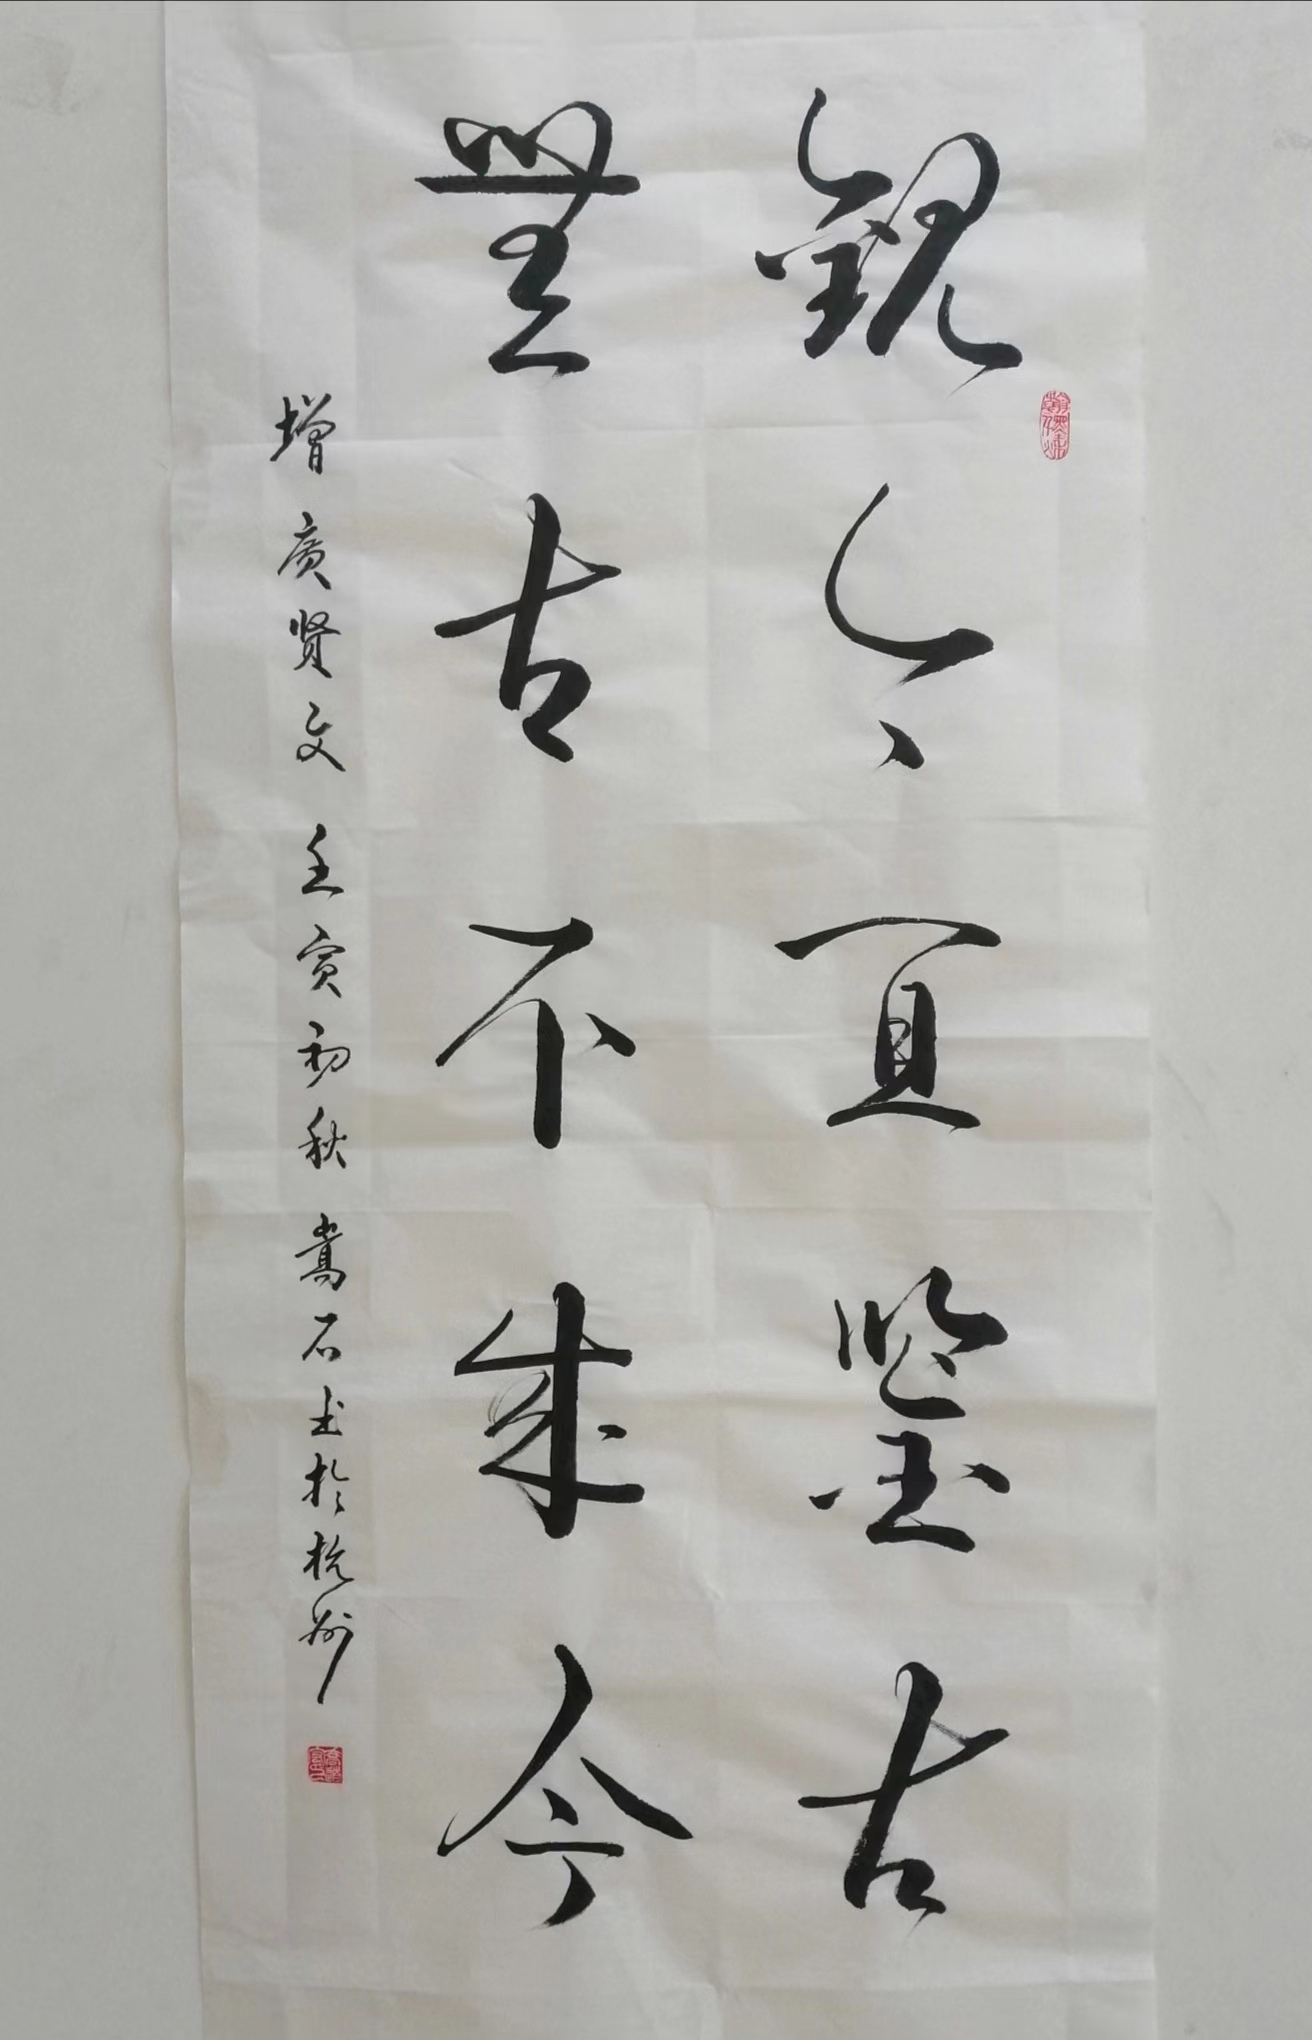 觀今宜鑒古
無古不成今
增廣賢文 壬寅初秋 嵩石書於杭州